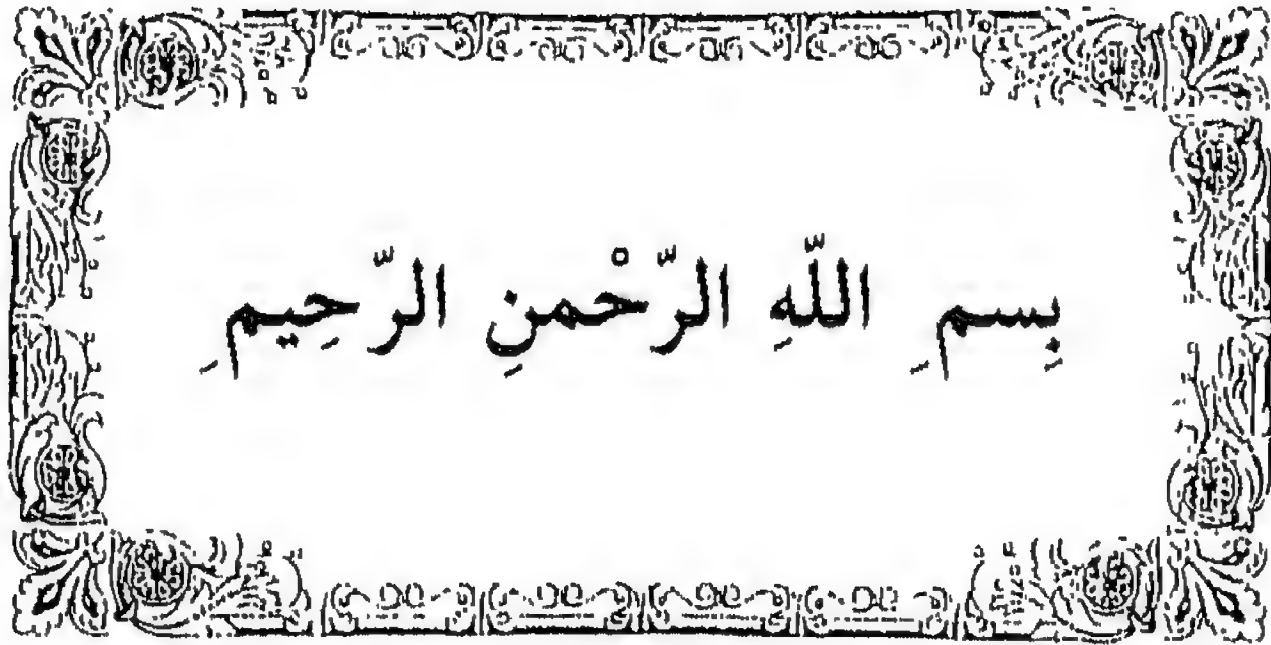 بِسمِ اللّهِ الرّحْمنِ الرّحِيمِ